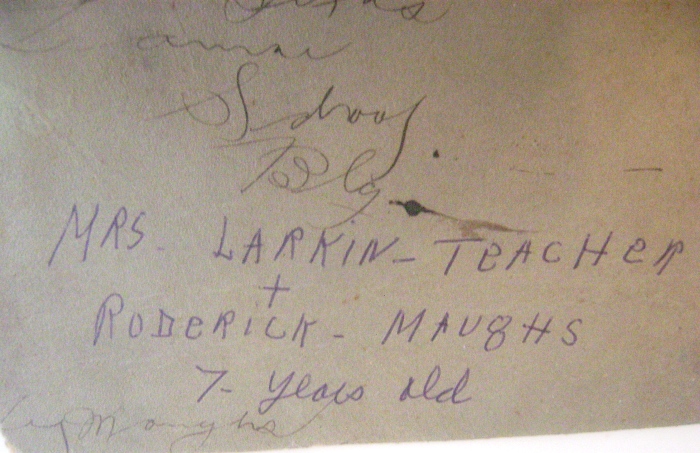 Texas
Lamar
School
Blg.
MRS. LARKIN - TEACHER
+
RODERICK - MAUGHS
7 - years old
Maughs